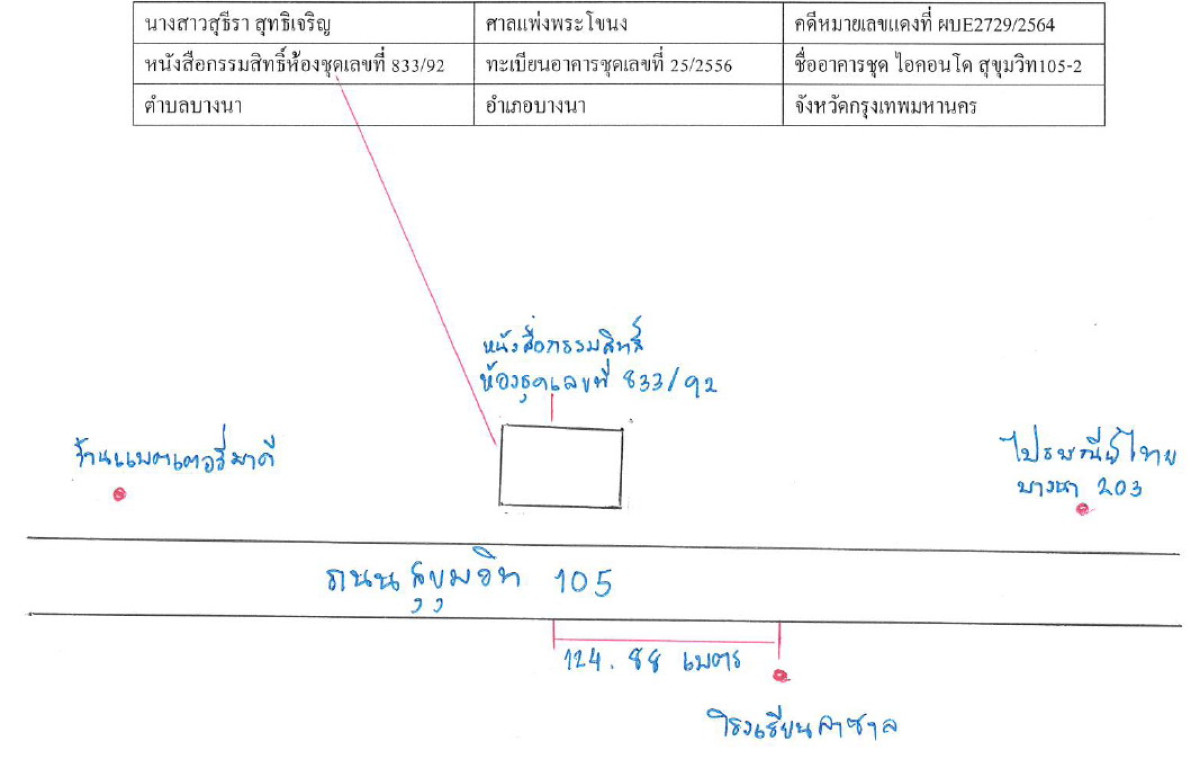 นางสาวสุธีรา สุทธิเจริญ ศาลแพ่งพระโขนง คดีหมายเลขแดงที่ ผบE2729/2564
หนังสือกรรมสิทธิ์ห้องชุดเลขที่ 833/92 ทะเบียนอาคารชุดเลขที่ 25/2556 ชื่ออาคารชุด ไอคอนโด สุขุมวิท105-2
ตำบลบางนา อำเภอบางนา จังหวัดกรุงเทพมหานคร
หนังสือกรรมสิทธิ์
ห้องชุดเลขที่ 833/92
ร้านแบตเตอรี่มาดี
ไปรษณีย์ไทย
บางนา 203
ถนนสุขุมวิท 105
124.88 เมตร
โรงเรียนลาซาล